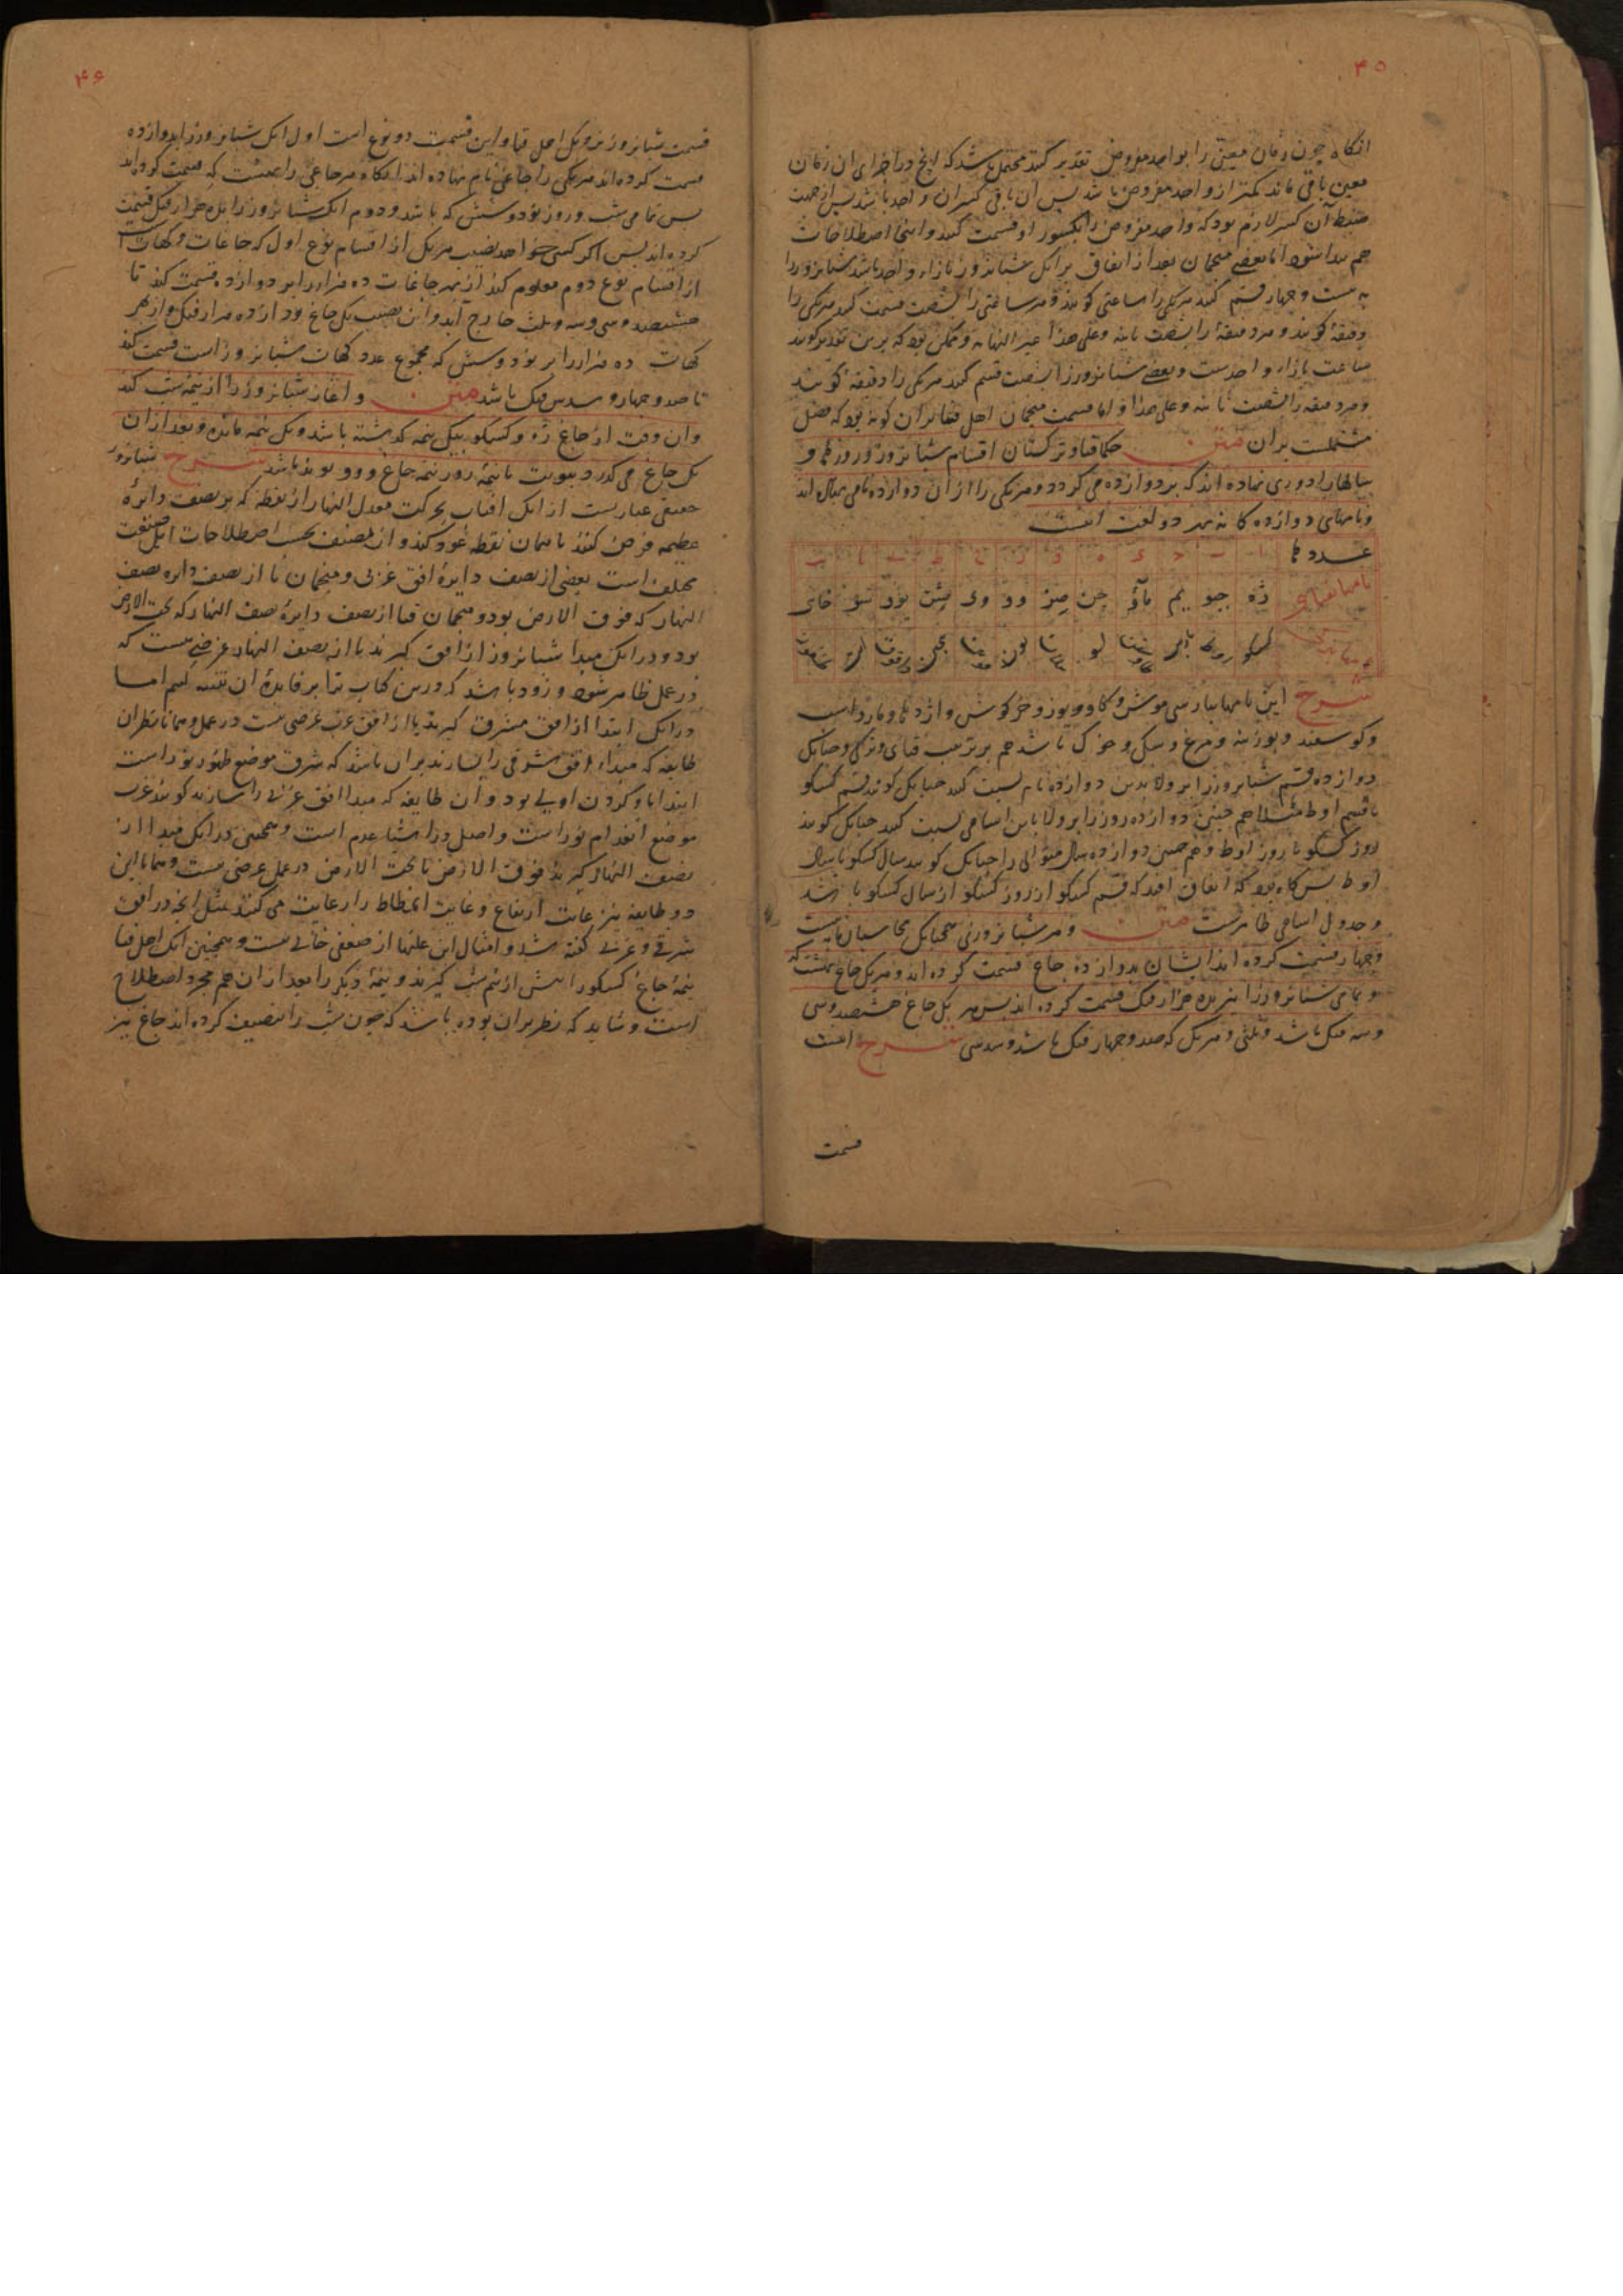 ۴۵
انگاه چون زمان معین را بواحد مفروض تقدیر کنند محتمل باشد که انچ در اخرای ان زمان
معین باقی ماند کمتر از واحد مفروض باشد پس ان باقی کسران واحد باشد پس از جهت
ضبط آن کسر لازم بود که واحد مفروض را بکسور او قسمت کنند و اینجا اصطلاحات
هم بعضی منجمان بعد از اتفاق برانک شبانروز بازاء واحد باشد شبانروز را
به بیست و چهار قسم کنند هر یکی را ساعتی کویند و هر ساعتی را بشصت قسمت کنند هر یکی را
دقیقه کویند و هر دقیقه را بشصت ثانیه وعلی هذا الی غیر النهایه و ممکن بود که برین تقدیر کویند
ساعت بازاء واحدست و بعضی شبانروز را بشصت قسم کنند هر یکی را دقیقه کویند
و هر دقیقه را بشصت ثانیه وعلی هذا و اما قسمت منجمان اهل قتا بران کونه بود که فصل
مشتملست بران متن حکما قتا و ترکستان اقسام شبانروز و روزها و
سالها را دوری نهاده اند که بر دوازده می کردد و هر یکی را از ان دوازده نامی نهاده اند
و نامهای دوازده کانه بهر دو لغت اینست
عددها ا ب ج د ه و ز ح ط ی یا یب
نامها بقتایی ژه چیو یم ماو چن صز وو وی شن یوو سو خای
شرح این نامها بپارسی موش و کاو و یوز و خرکوش و اژدها و مار و اسب
و کوسفند و بوزینه و مرغ و سک و خوک باشد هم بر ترتیب قتای و ترکی و چنانک
دوازده قسم شبانروز را بر ولا بدین دوازده نام نسبت کنند چنانک کویند قسم کسکو
تا قسم اوط مثلا هم چنین دوازده روز را بر ولا باین اسامی نسبت کنند چنانک کویند
روز کسکو تا روز اوط و هم چنین دوازده سال متوالی را چنانک کویند سال کسکو تا سال
اوط پس کاه بود که اتفاق افتد که قسم کسکو از روز کسکو از سال کسکو باشد
و جدول اسامی ظاهرست متن و هر شبانروزی همچنانک محاسبان به بیست
و چهار قسمت کرده اند ایشان بدوازده جاغ قسمت کرده اند و هر یک جاغ بهشت که
و تمامی شبانروز را نیز بده هزار فنک قسمت کرده اند پس هر یک جاغ هشتصد و سی
و سه فنک باشد و ثلثی و هر یک که صد و چهار فنک باشد و سدسی شرح اینست
قسمت
۴۶
قسمت شبانروز نزدیک اهل قتا و این قسمت دو نوع است اول انک شبانروز را بدوازده
قسمت کرده اند هر یکی را جاغی نام نهاده اند انکاه هر جاغی را بهشت که قسمت کرده اند
پس تمامی شب و روز نود و شش که باشد و دوم انک شبانروز را بده هزار فنک قسمت
کرده اند پس اکر کسی خواهد نصیب هر یک از اقسام نوع اول که جاغات و کهات است
از اقسام نوع دوم معلوم کند از بهر جاغات ده هزار را بر دوازده قسمت کند تا
هشتصد و سی و سه و ثلث خارج آید و این نصیب یک جاغ بود از ده هزار فنک و از بهر
کهات ده هزار را بر نود و شش که مجموع عدد کهات شبانروز است قسمت کند
تا صد و چهار و سدس فنک باشد متن و اغاز شبانروز را از نیمه شب کنند
و ان وقت از جاغ ژه و کسکو بیک نیمه کذشته باشد و یک نیمه مانده و بعد از ان
یک جاغ می کذرد بنوبت تا نیمه روز نیمه جاغ وو و یوند باشد شرح شبانروز
حقیقی عبارتست از انک افتاب بحرکت معدل النهار از نقطه که بر نصف دایرهٔ
عظیمه فرض کنند تا بهمان نقطه عود کند و ان نصف بحسب اصطلاحات اهل صنعت
مختلف است بعضی از نصف دایرهٔ افق غربی و منجمان ما از نصف دایره نصف
النهار که فوق الارض بود و منجمان قتا از نصف دایرهٔ نصف النهار که تحت الارض
بود و در انک مبدا شبانروز از افق کیرند یا از نصف النهار غرضی هست که
در عمل ظاهر شود و زود باشد که درین کتاب ترا بر فایدهٔ ان تنبیه کنیم اما
در انک ابتدا از افق مشرق کیرند یا از افق غرب غرضی نیست در عمل و همانا نظران
طایفه که مبداء افق شرقی را سازند بران باشد که شرق موضع ظهور نور است
ابتدا باو کردن اولی بود و ان طایفه که مبدا افق غربی را سازند کویند غرب
موضع انعدام نور است و اصل در اشیا عدم است و همچنین در انک مبدا از
نصف النهار کیرند فوق الارض یا تحت الارض در عمل غرضی نیست و همانا این
دو طایفه نیز غایت ارتفاع و غایت انحطاط را رعایت می کنند بمثل انچه در افق
شرقی و غربی کفته شد و امثال این علتها از ضعفی خالی نیست و همچنین انک اهل قتا
نیمهٔ جاغ کسکو را پیش از نیم شب کیرند و نیمهٔ دیکر را بعد از ان هم مجرد اصطلاح
است و شاید که نظر بران بوده باشد که چون شب را تنصیف کرده اند جاغ نیز